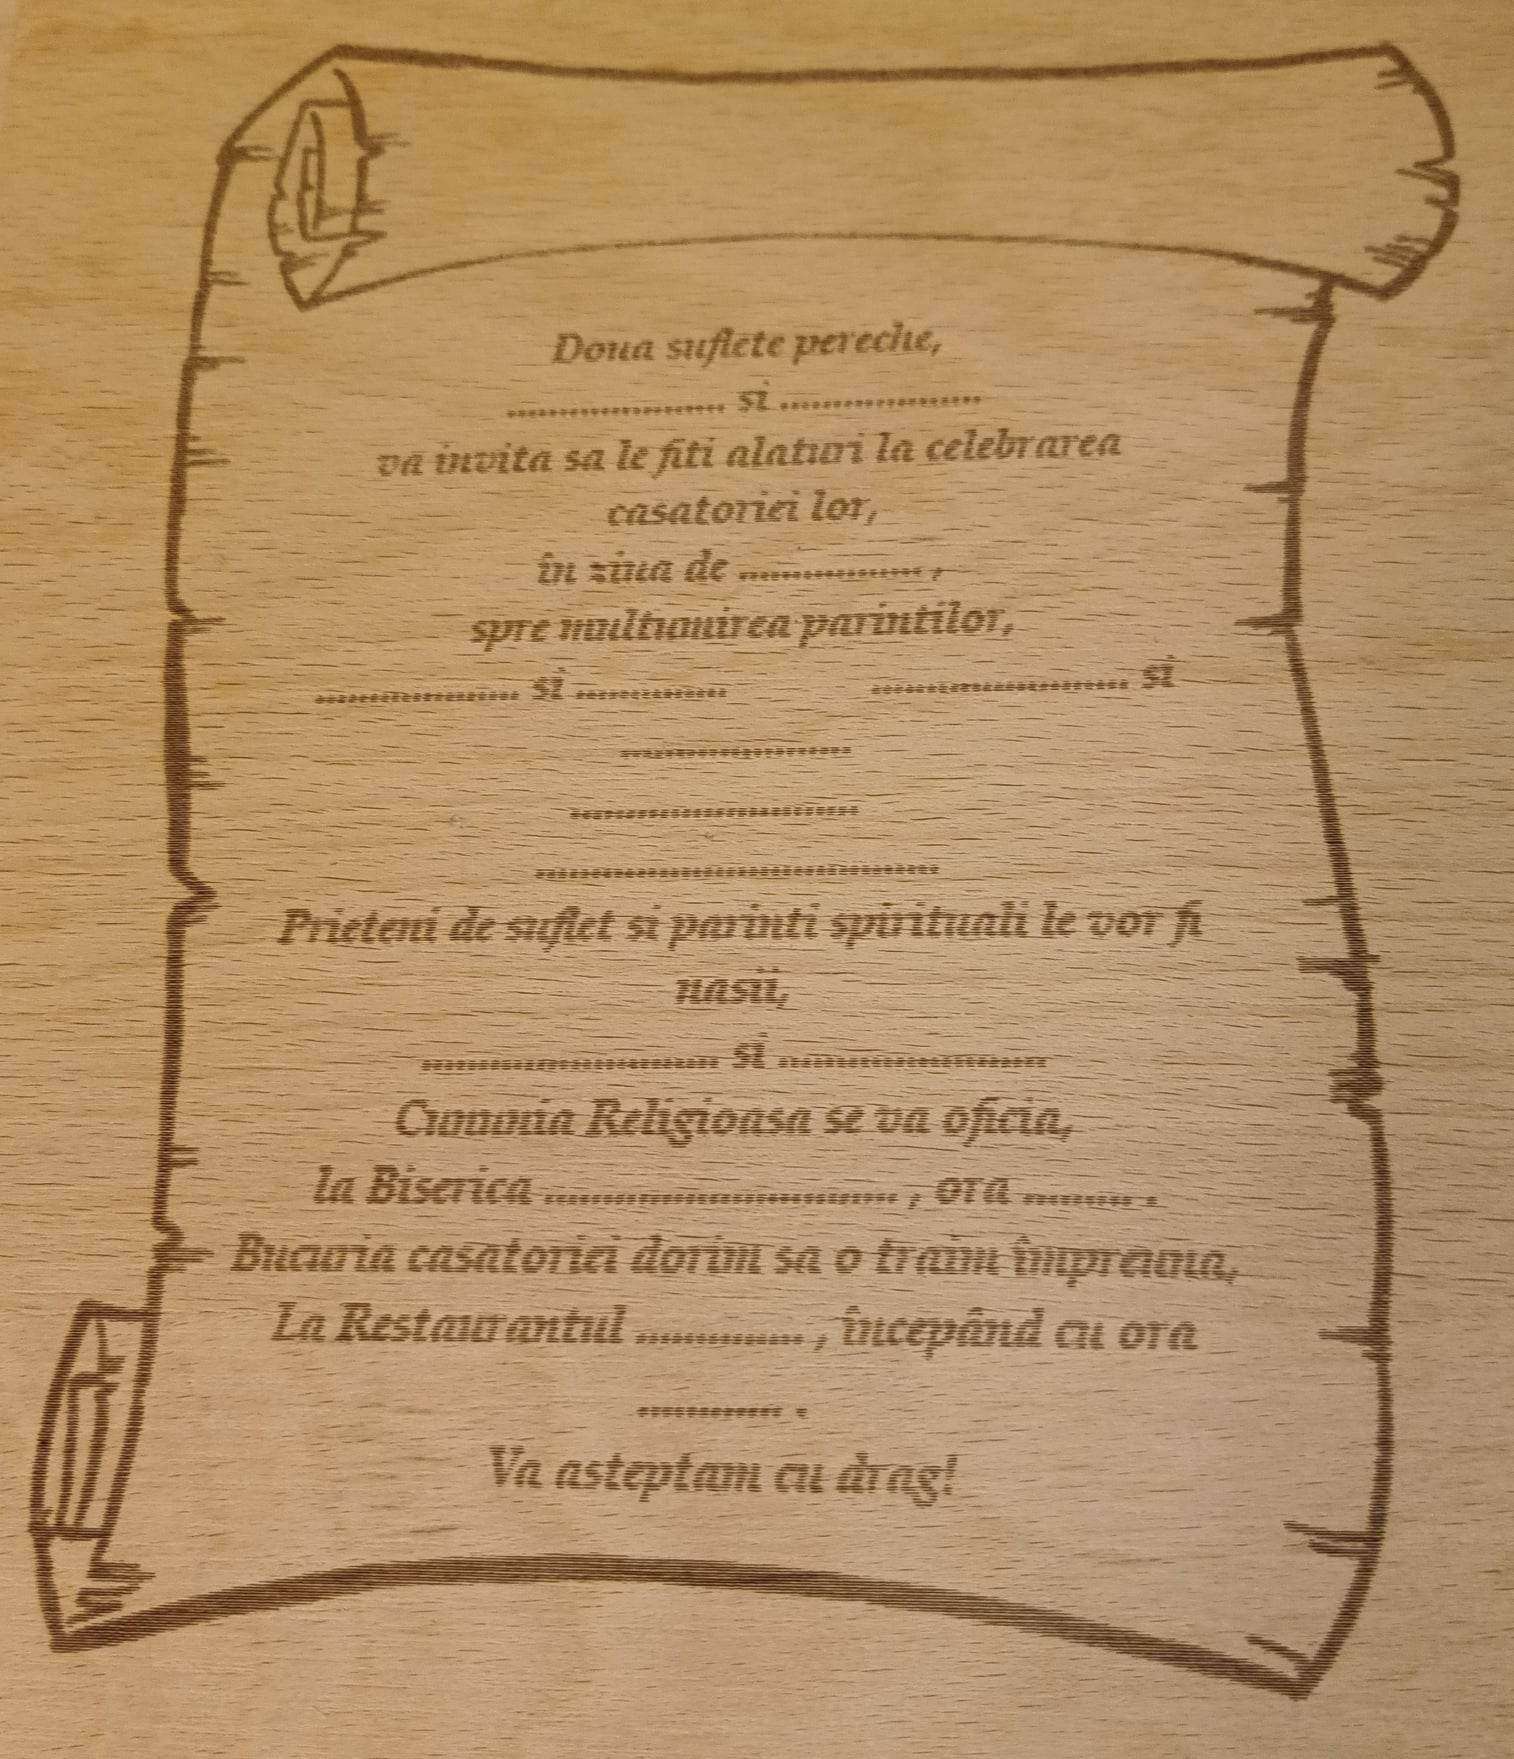 Doua suflete pereche,
..................... si ....................
va invita sa le fiti alaturi la celebrarea
casatoriei lor,
în ziua de .................. ,
spre multumirea parintilor,
.................... si ............... ......................... si
.......................
.............................
........................................
Prieteni de suflet si parinti spirituali le vor fi
nasii,
.............................. si ...........................
Cununia Religioasa se va oficia,
la Biserica ................................... , ora ........... .
Bucuria casatoriei dorim sa o traim împreuna,
La Restaurantul ................. , începând cu ora
............... .
Va asteptam cu drag!